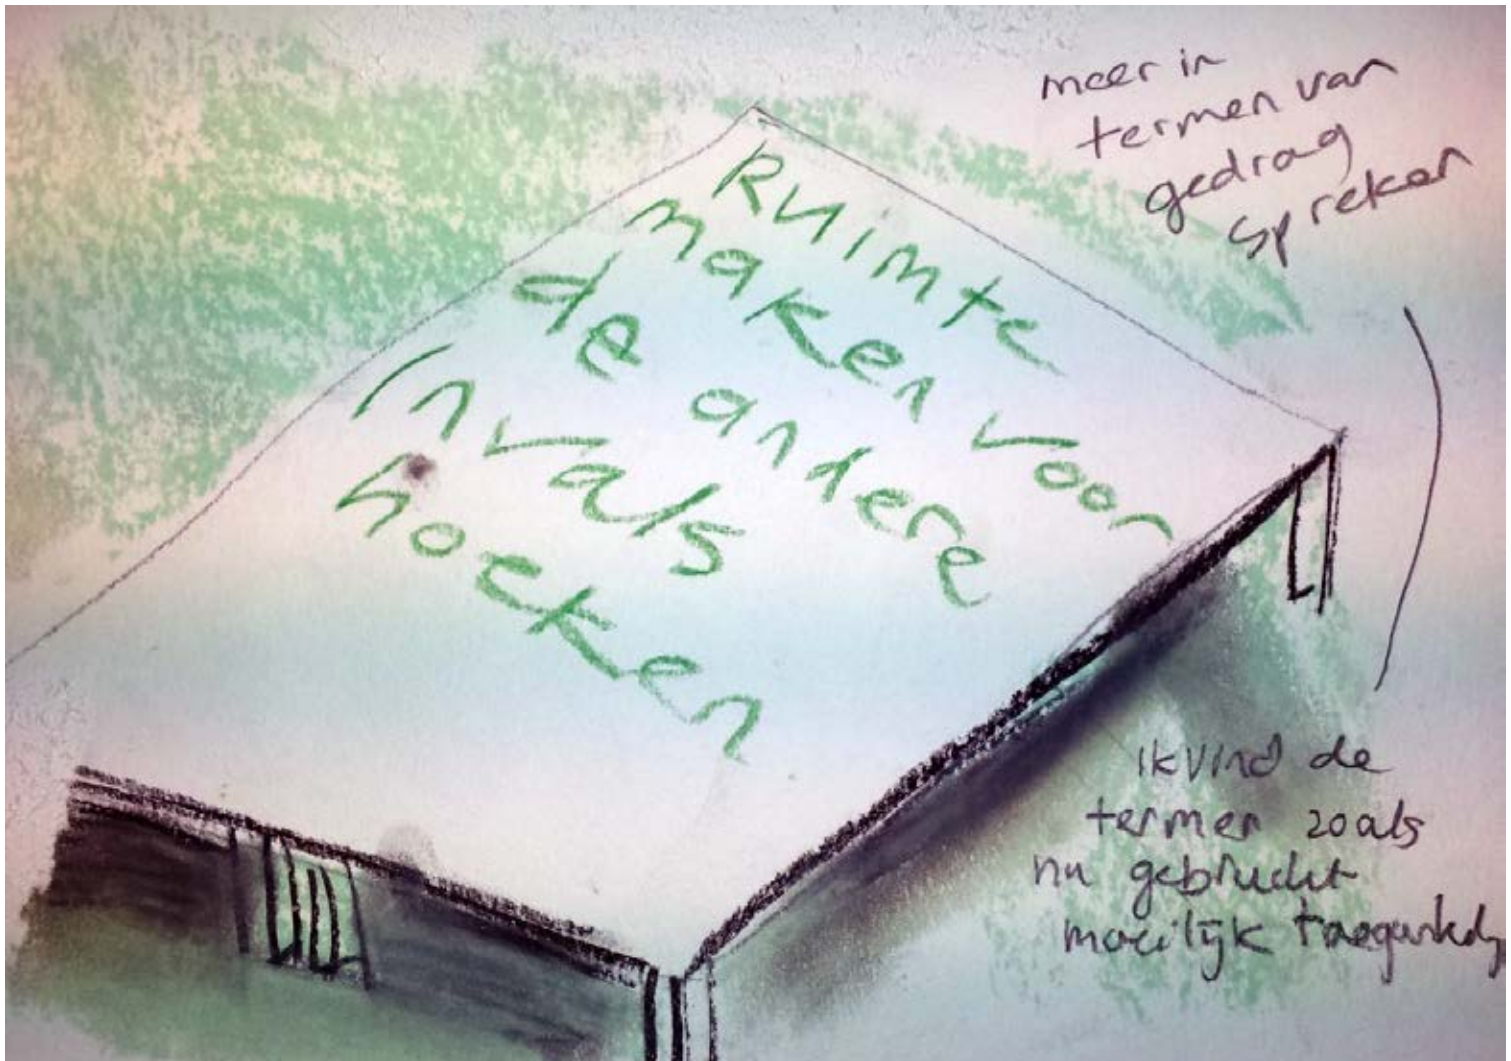 meer in
termen van
gedrag
spreken
Ruimte
maken voor
de andere
invals
hoeken
ik vind de
termen zoals
nu gebruikt
moeilijk toegankelijk